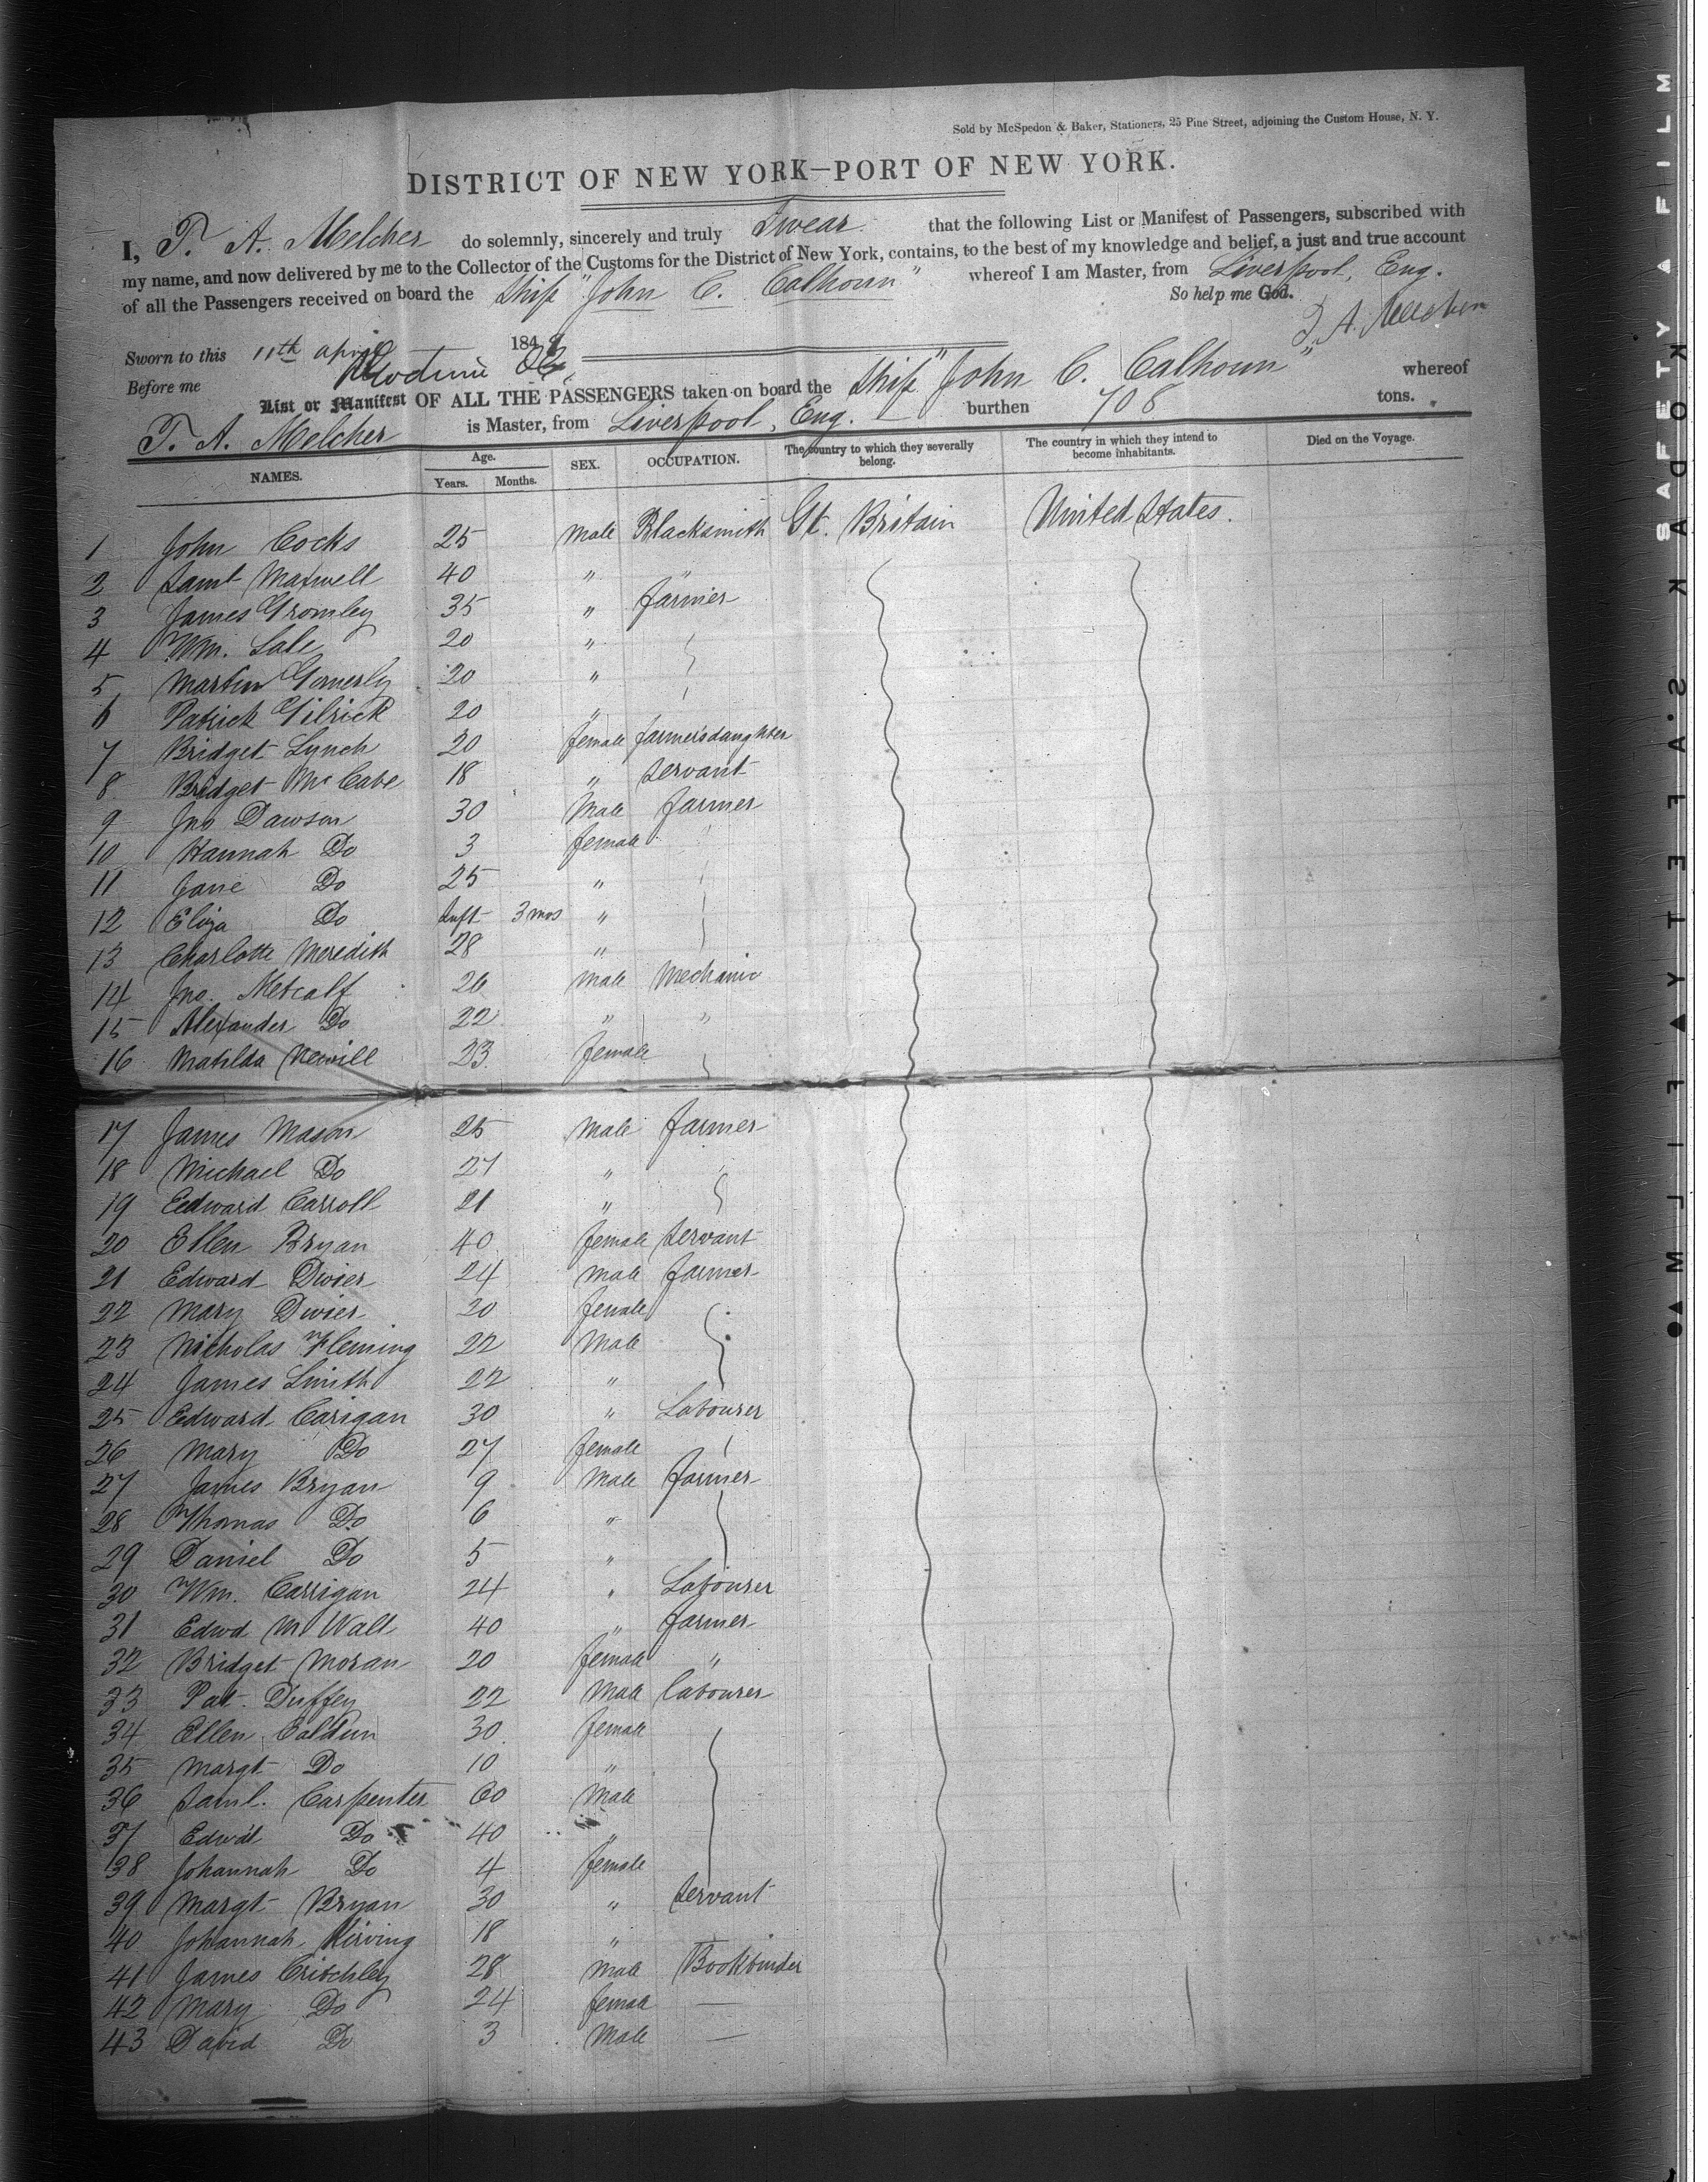 Sold by McSpedon & Baker, Stationers, 25 Pine Street, adjoining the Custom House, N. Y.
DISTRICT OF NEW YORK—PORT OF NEW YORK.
I, T. A. Melcher do solemnly, sincerely and truly Swear that the following List or Manifest of Passengers, subscribed with
my name, and now delivered by me to the Collector of the Customs for the District of New York, contains, to the best of my knowledge and belief, a just and true account
of all the Passengers received on board the Ship "John C. Calhoun" whereof I am Master, from Liverpool, Eng.
So help me God.
T. A. Melcher
Sworn to this 11th april 184
Before me
List or Manifest OF ALL THE PASSENGERS taken on board the Ship "John C. Calhoun" whereof
T. A. Melcher is Master, from Liverpool, Eng. burthen 708 tons.
NAMES. Age. Years. Months. SEX. OCCUPATION. The country to which they severally belong. The country in which they intend to become inhabitants. Died on the Voyage.
1 John Cocks 25 Male Blacksmith Gt. Britain United States.
2 Saml Maxwell 40 " "
3 James Gromley 35 " farmer
4 Wm. Sale 20 "
5 Martin Gomerly 20 "
6 Patrick Gilrick 20 "
7 Bridget Lynch 20 female farmer's daughter
8 Bridget McCabe 18 " Servant
9 Jno Dawson 30 Male farmer
10 Hannah Do 3 female
11 Jane Do 25 "
12 Eliza Do Inft 3 mos "
13 Charlotte Meredith 28 "
14 Jno. Metcalf 26 Male Mechanic
15 Alexander Do 22 " "
16 Matilda Newill 23 female
17 James Mason 25 Male farmer
18 Michael Do 27 " "
19 Edward Carroll 21 "
20 Ellen Bryan 40 female Servant
21 Edward Dwier 24 Male farmer
22 Mary Dwier 20 female
23 Nicholas Fleming 22 Male
24 James Smith 22 "
25 Edward Carigan 30 " Labourer
26 Mary Do 27 female
27 James Bryan 9 Male farmer
28 Thomas Do 6 "
29 Daniel Do 5 "
30 Wm. Carrigan 24 " Labourer
31 Edwd 40 " farmer
32 Bridget Moran 20 female "
33 Pat. Duffey 22 Male labourer
34 Ellen 30 female
35 Margt Do 10 "
36 Saml. Carpenter 60 Male
37 Edwd Do 40 "
38 Johannah Do 4 female
39 Margt Bryan 30 " Servant
40 Johannah Kirving 18 "
41 James Critchley 28 Male Bookbinder
42 Mary Do 24 female —
43 David Do 3 Male —
KODAK SAFETY A FILM
S'AFETY A FILM